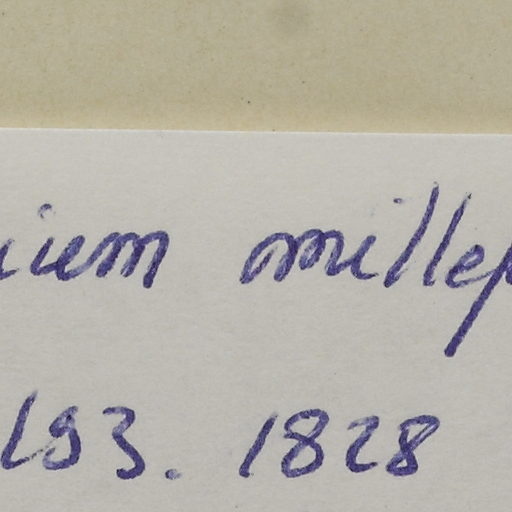 ium millep
193. 1828